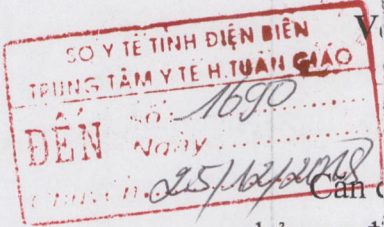 SỞ Y TẾ TỈNH ĐIỆN BIÊN
TRUNG TÂM Y TẾ H.TUẦN GIÁO
ĐẾN Số: 1690
Ngày 25/12/2018
Chuyển
Căn